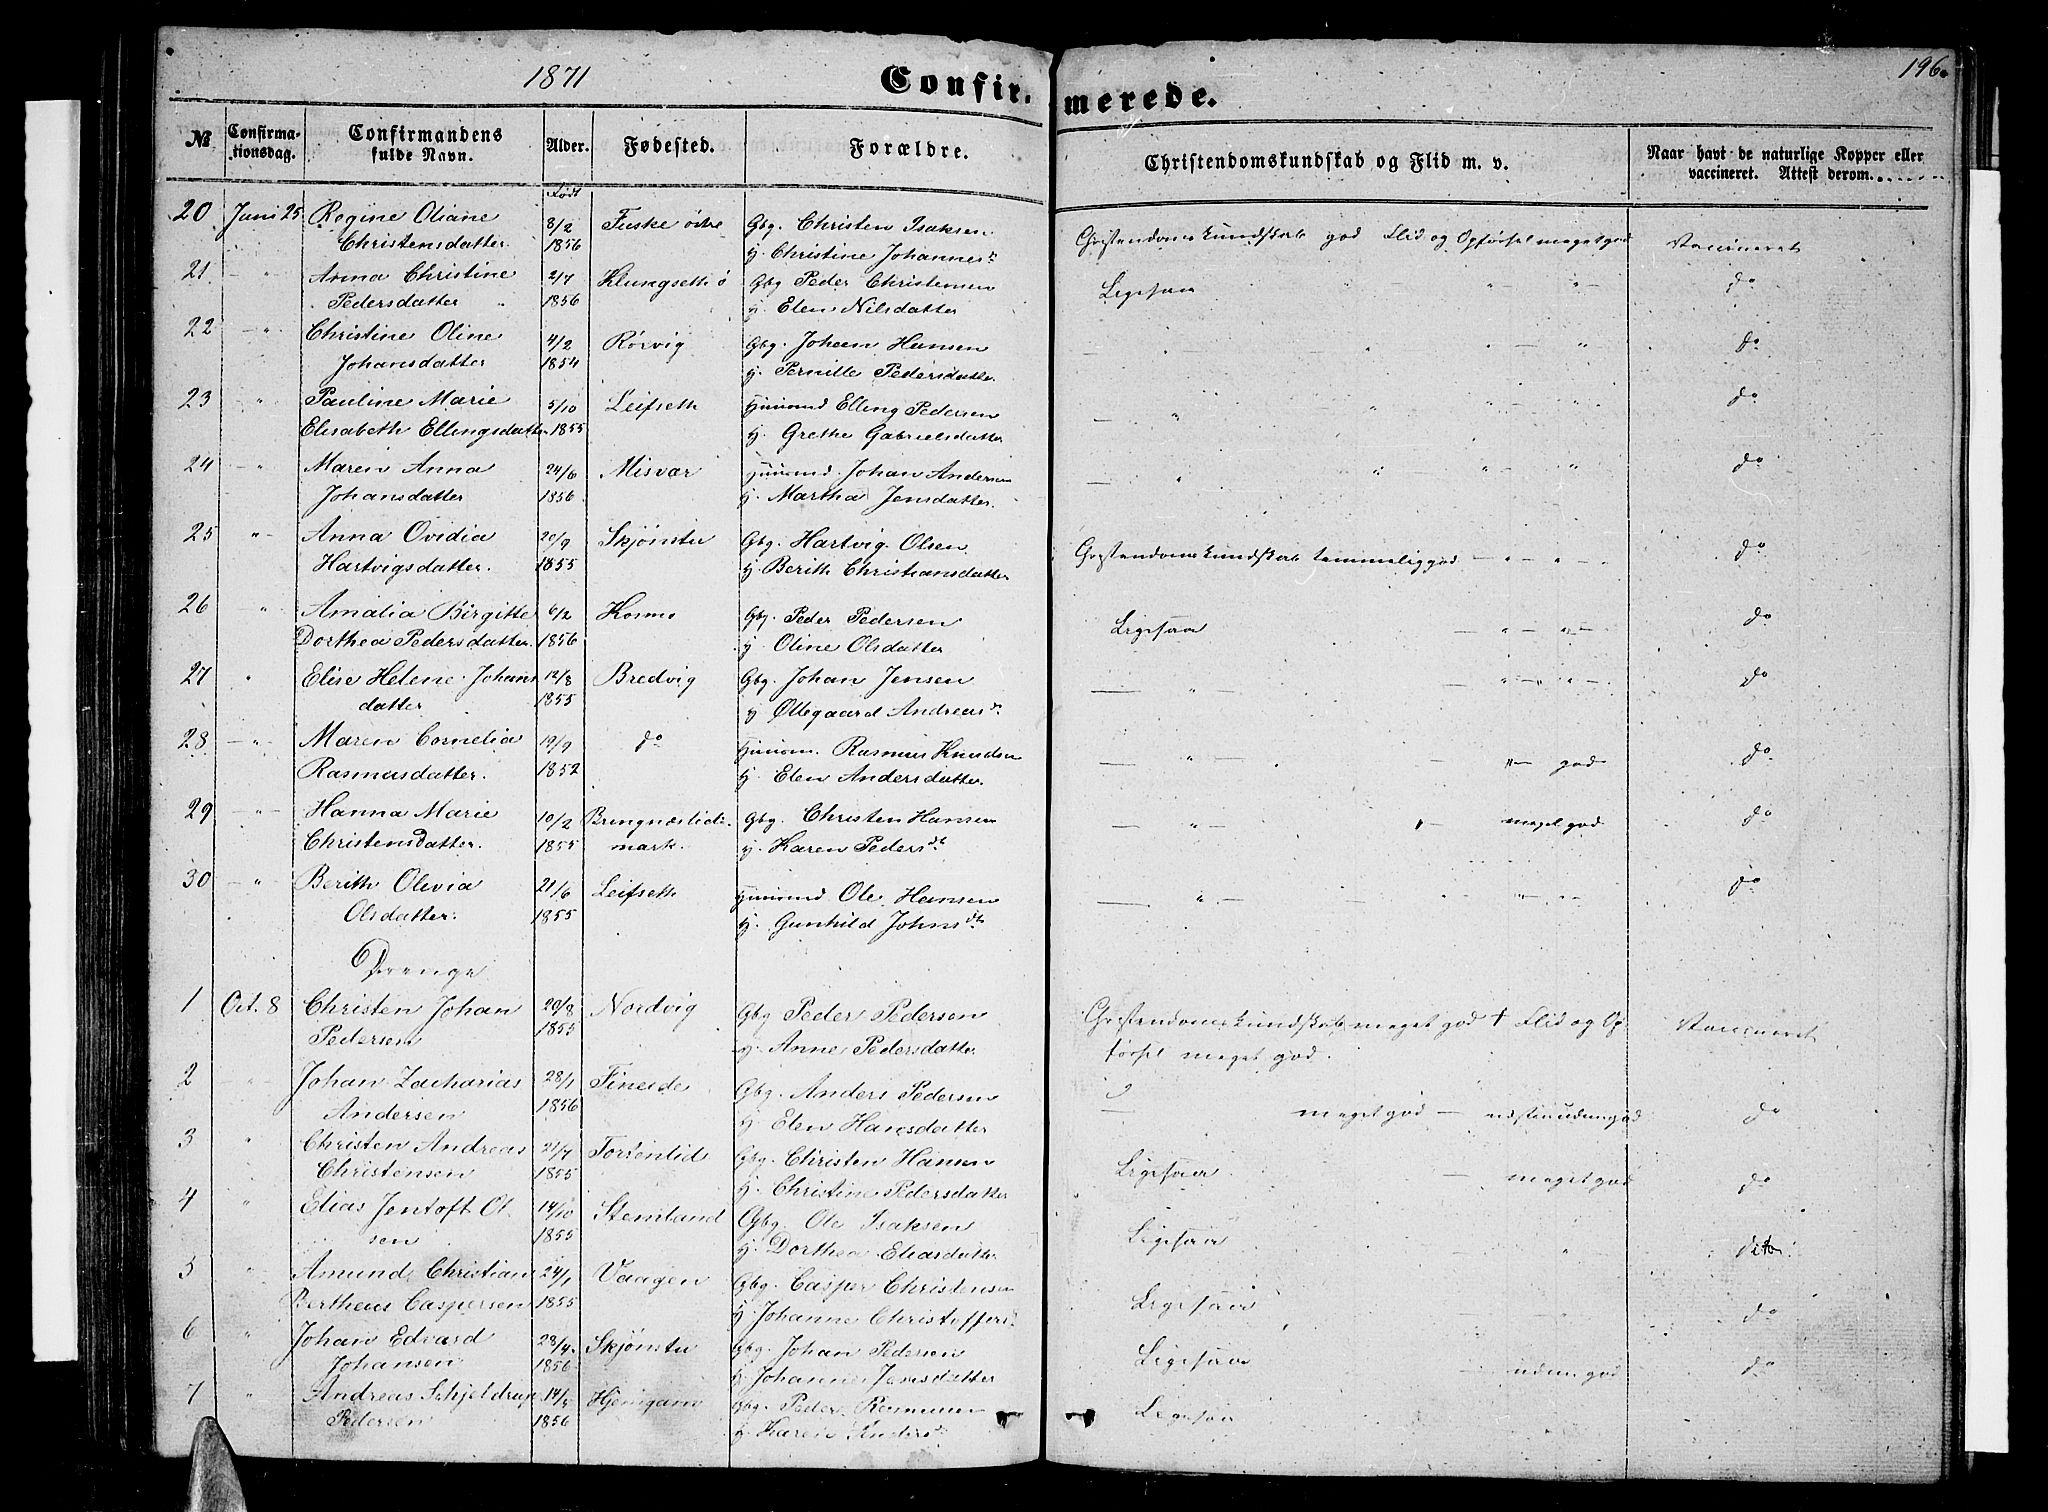 1871
Confirmerede.
196
№
Confirmationsdag.
Confirmandens fulde Navn.
Alder.
Fødested.
Forældre.
Christendomskundskab og Flid m. v.
Naar havt de naturlige Kopper eller vaccineret. Attest derom.
Født
20 Juni 25 Regine Oliane 8/2 Fuske Gbg. Christen Isaksen
Christensdatter 1856 H. Christine Johannes
god Flid og Opførsel meget god Vaccineret
21 Anna Christine 2/7 Gbg Peder Christensen
Pedersdatter 1856 H. Elen Nilsdatter
Ligesaa do
22 Christine Oline 4/2 Rørvig Gbg. Johan Hansen
Johansdatter 1854 H. Pernille Pedersdatter
do
23 Pauline Marie 5/10 Leifseth Huusmd Elling Pedersen
Elisabeth Ellingsdatter 1855 H. Grethe Gabrielsdatter
do
24 Maren Anna 24/6 Misvær Huusmd. Johan Andersen
Johansdatter 1856 H. Martha Jensdatter
do
25 Anna Ovidia 20/9 Skjønstu Gbg. Hartvig Olsen
Hartvigsdatter. 1855 H. Berith Christiansdatter
temmelig god do
26 Amalia Birgitte 6/2 Kosmo Gbg. Peder Pedersen
Dorthea Pedersdatter. 1856 H. Oline Olsdatter
Ligesaa do
27 Elise Helene Johans 12/8 Bredvig Gbg. Johan Jensen
datter 1855 H Øllegaard Andreas
do
28 Maren Cornelia 19/9 do Huusm. Rasmus Knudsen
Rasmusdatter. 1852 H. Elen Andersdatter
god do
29 Hanna Marie 10/2 Gbg. Christen Hansen
Christensdatter. 1855 mark. H. Karen Peders dt
meget god do
30 Berith Olevia 21/6 Leifseth Huusmd Ole Hansen
Olsdatter. 1855 H. Gunhild Johns dtr
do
Drenge
1 Oct. 8 Christen Johan 29/8 Nordvig Gbg Peder Pedersen
Pedersen 1855 H. Anne Pedersdatter
meget god + Flid og Op
førsel meget god. Vaccineret
2 Johan Zacharias 28/1 Fineide Gbg. Anders Pedersen
Andersen 1856 H. Elen Hansdatter
meget god do
3 Christen Andreas 21/7 Tortenlid Gbg. Christen Hansen
Christensen 1855 H. Christine Pedersdatter
Ligesaa meget god do
4 Elias Jentoft Ol 14/10 Stemland Gbg. Ole Isaksen
sen 1855 H. Dorthea Eliasdatter
Ligesaa dito
5 Amund Christian 24/1 Vaagen Gbg. Casper Christensen
Bertheus Caspersen 1855 H. Johanne Christoffers
Ligesaa do
6 Johan Edvard 28/4 Skjønstu Gbg. Johan Pedersen
Johansen 1856 H. Johanne Jensdatter
Ligesaa god do
7 Andreas Schjeldrup 14/5 Gbg. Peder Rasmussen
Pedersen 1856 H. Karen Anders
Ligesaa